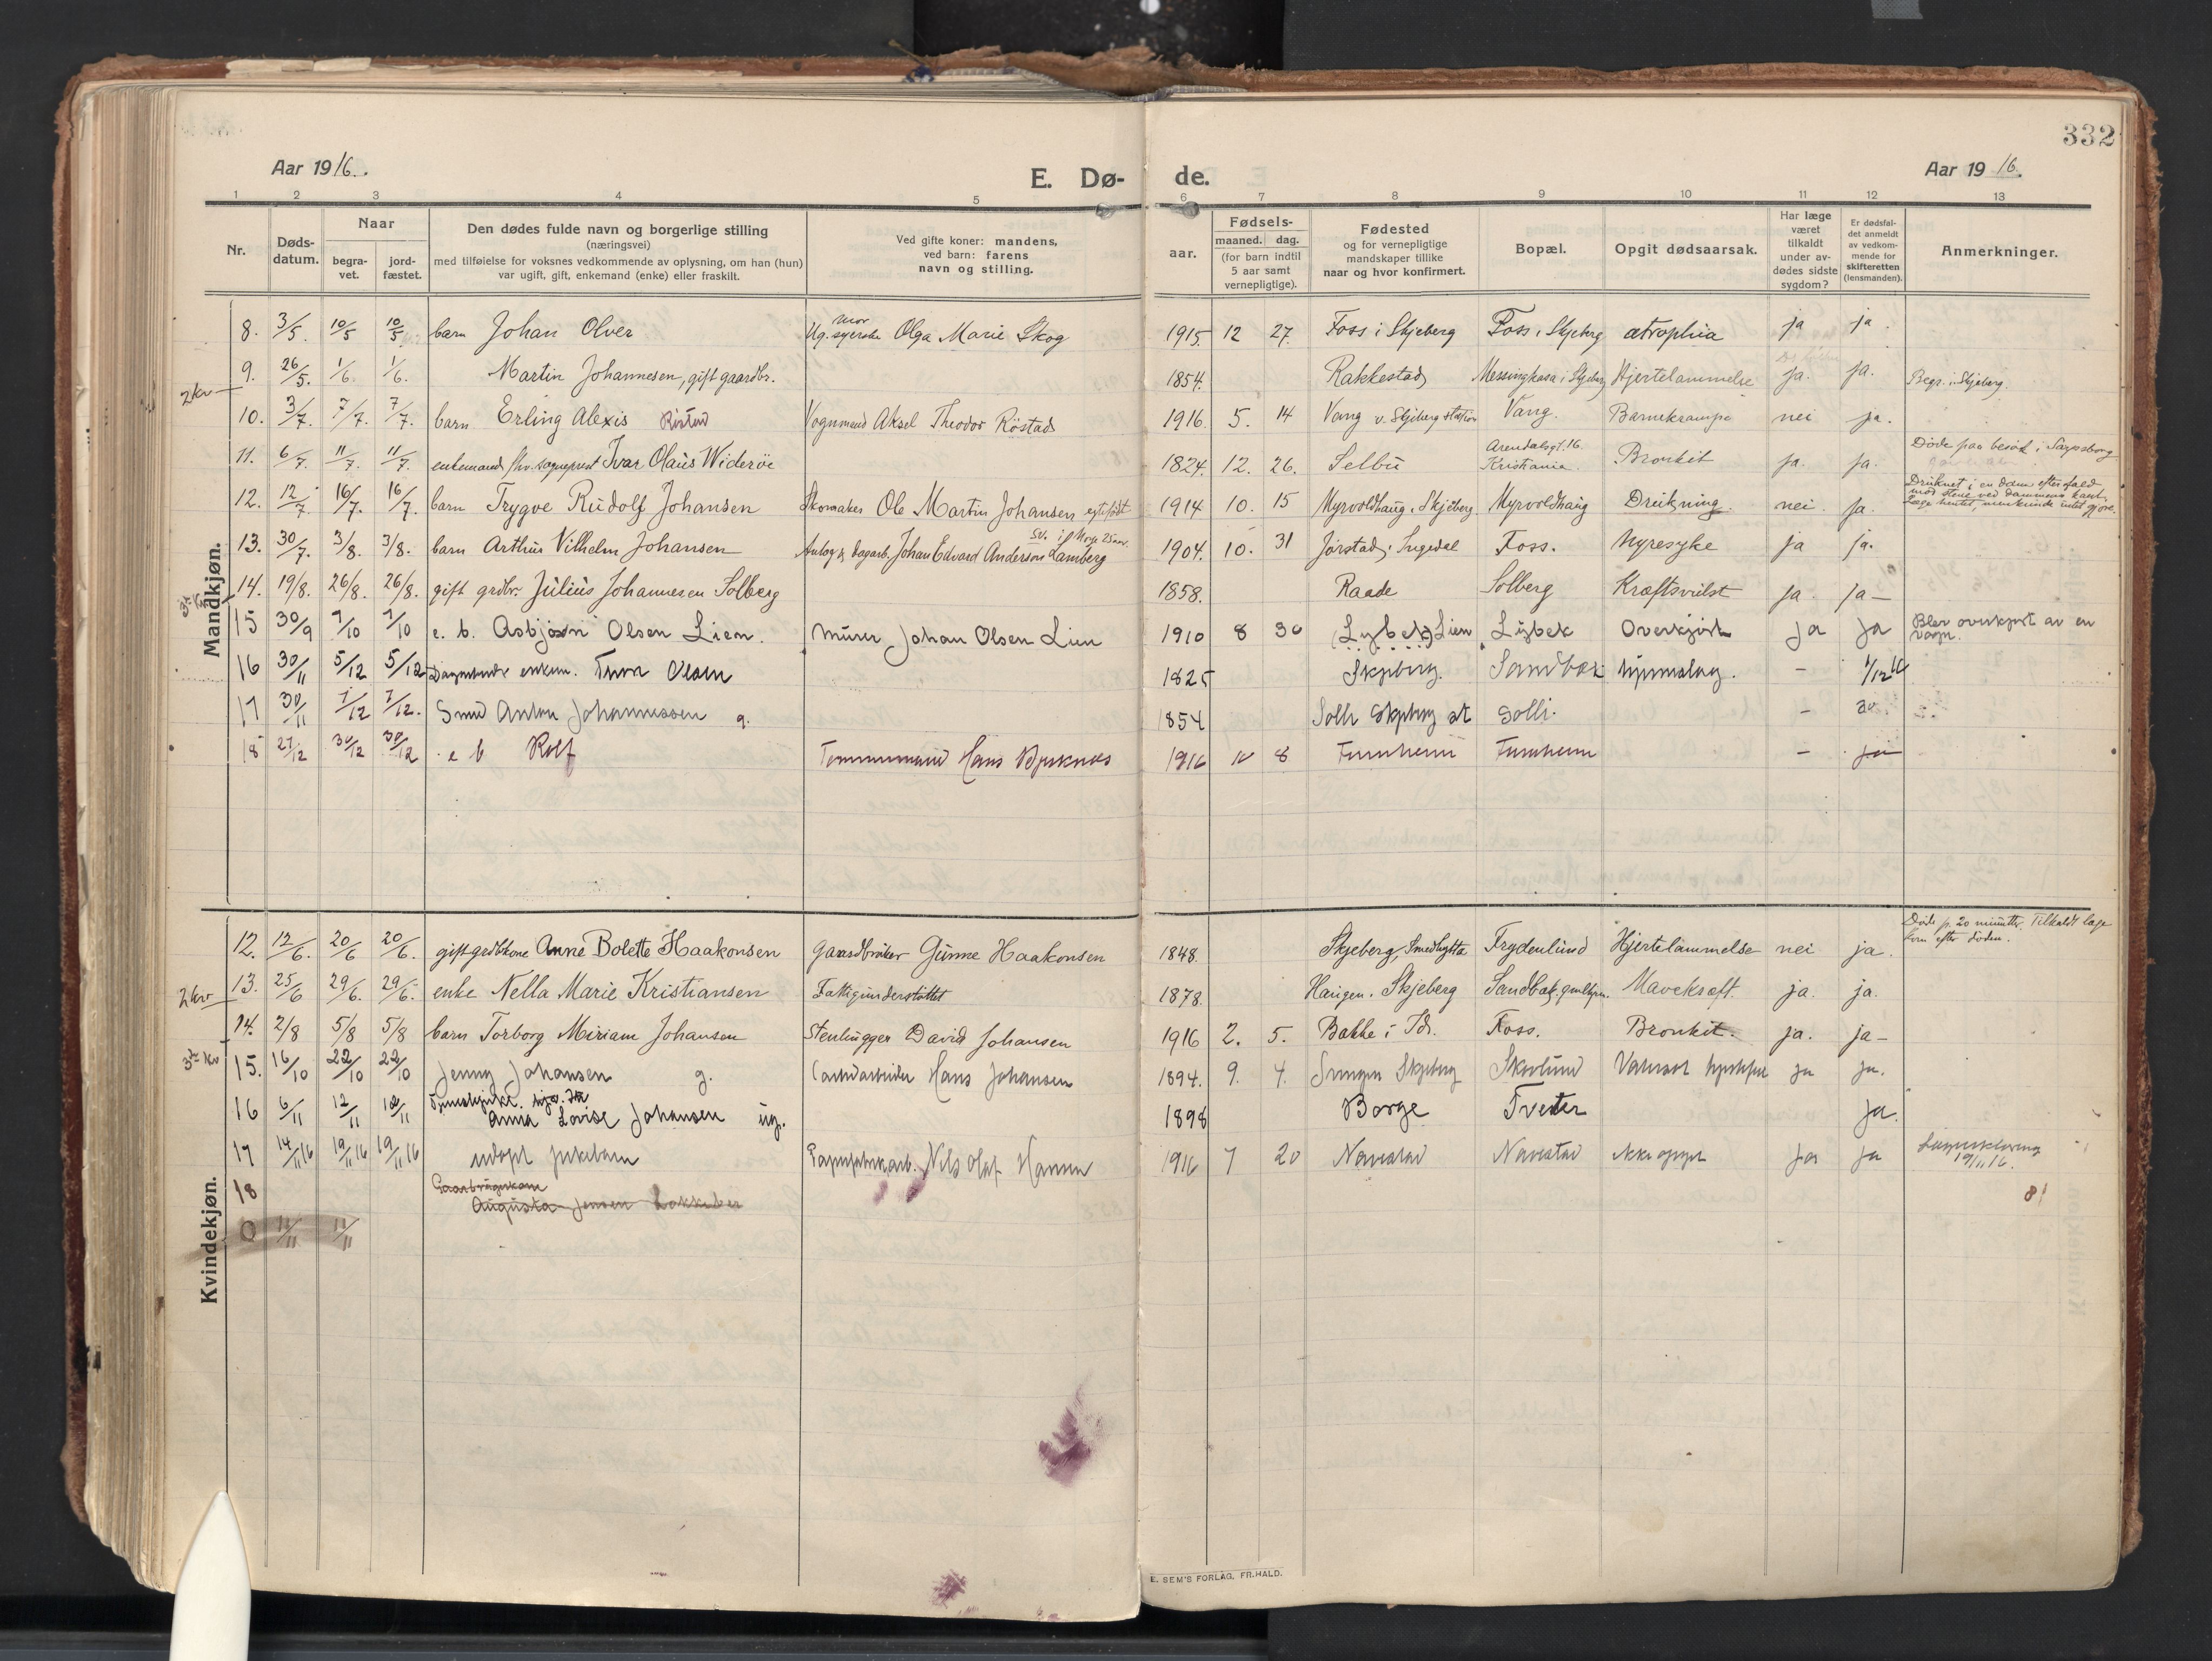 332
Aar 1916.
E. Dø-
de.
Aar 1916.
1 2 3 4 5 6 7 8 9 10 11 12 13
Nr.
Døds-
datum.
Naar
begra-
vet.
jord-
fæstet.
Den dødes fulde navn og borgerlige stilling
(næringsvei)
med tilføielse for voksnes vedkommende av oplysning, om han (hun)
var ugift, gift, enkemand (enke) eller fraskilt.
Ved gifte koner: mandens,
ved barn: farens
navn og stilling.
Fødsels-
aar.
maaned. dag.
(for barn indtil
5 aar samt
vernepligtige).
Fødested
og for vernepligtige
mandskaper tillike
naar og hvor konfirmert.
Bopæl.
Opgit dødsaarsak.
Har læge
været
tilkaldt
under av-
dødes sidste
sygdom?
Er dødsfal-
det anmeldt
av vedkom-
mende for
skifteretten
(lensmanden).
Anmerkninger.
Mandkjøn.
8. 3/5. 10/5 10/5. barn Johan Olver Ug. syerske mor Olga Marie Skog 1915 12 27. Foss i Skjeberg Foss i Skjeberg atrophia ja ja.
9. 26/5. 1/6. 1/6. Martin Johannesen, gift gaardbr. 1854. Rakkestad Messingkasa i Skjeberg Hjertelammelse ja. ja. Begr. i Skjeberg.
2 kv
10. 3/7. 7/7. 7/7. barn Erling Alexis Röstad Vognmand Aksel Theodor Röstad 1916. 5. 14 Vang v. Skjeberg station Vang. Barnekrampe nei ja.
11. 6/7. 11/7. 11/7. enkemand fhv. sogneprest Ivar Olaus Wideröe 1824. 12. 26. Selbu Arendalsgt. 16. Kristiania. Bronkit ja. ja. Döde paa besök i Sarpsborg
12. 12/7. 16/7. 16/7. barn Trygve Rudolf Johansen Skomaker Ole Martin Johansen 1914 10. 15 Myrvoldhaug i Skjeberg Myrvoldhaug Drukning. nei. ja. Druknet i en dam efter at ved
13. 30/7. 3/8. 3/8. barn Arthur Vilhelm Johansen dagarb. Johan Edvard Anderson Lamberg 1904. 10. 31 Jörstad i Ingedal Foss. Nyresyke ja ja.
14. 19/8. 26/8. 26/8. gift grdbr. Julius Johannesen Solberg 1858. Raade Solberg Kræftsvulst ja. ja-
15 30/9 7/10 7/10 e. b. Asbjørn Olsen Lien. Murer Johan Olsen Lien 1910 8 30 (Lybek) Lien Lybek Overkjört ja ja Blev overkjört av en vogn.
16 30/11 5/12 5/12 enkem. Olsen 1825 Skjeberg. Sandbæk hjerneslag. - 1/12 16
17 30/11 7/12 7/12. Smed Anton Johannessen g. 1854 Solli Skjeberg st Solli. -
18 27/12 30/12 30/12 e b Rolf Tømmermand Hans 1916 10 8 - ja
Kvindekjøn.
12. 12/6. 20/6 20/6. gift grdbkone Anne Bolette Haakonsen Gaardbruker Gunne Haakonsen 1848. Skjeberg, Smedhytta Frydenlund Hjertelammelse nei ja. Döde p. 20 minutter. Tilkaldt læge kom efter döden.
2 kv
13. 25/6 29/6. 29/6. enke Nella Marie Kristiansen Fattigunderstöttet 1878. Haugen i Skjeberg Sandbak Mavekræft. ja. ja.
14. 2/8 5/8 5/8 barn Torborg Miriam Johansen Stenhugger David Johansen 1916 2. 5. Bakke i Id. Foss. Bronkit. ja. ja-
3die kv
15. 16/10 22/10 22/10 Jenny Johansen g. Hans Johansen 1894. 9. 4. Skjeberg Skovlund ja ja.
16 6/11 12/11 12/11 Anna Lovise Johansen ug. 1898 Borge Tveter ja.
17 14/11 16 19/11 16 19/11 16 udøpt pikebarn Papirfabrikarb. Nils Olaf Hansen 1916 7 20 Navestad Navestad ikke opgit ja ja Lægeerklæring 19/11 16.
18 Gaardbrugerkone Augusta Jensen Lokkeber
81
0 11/11 11/11
E. SEM'S FORLAG, FR.HALD.